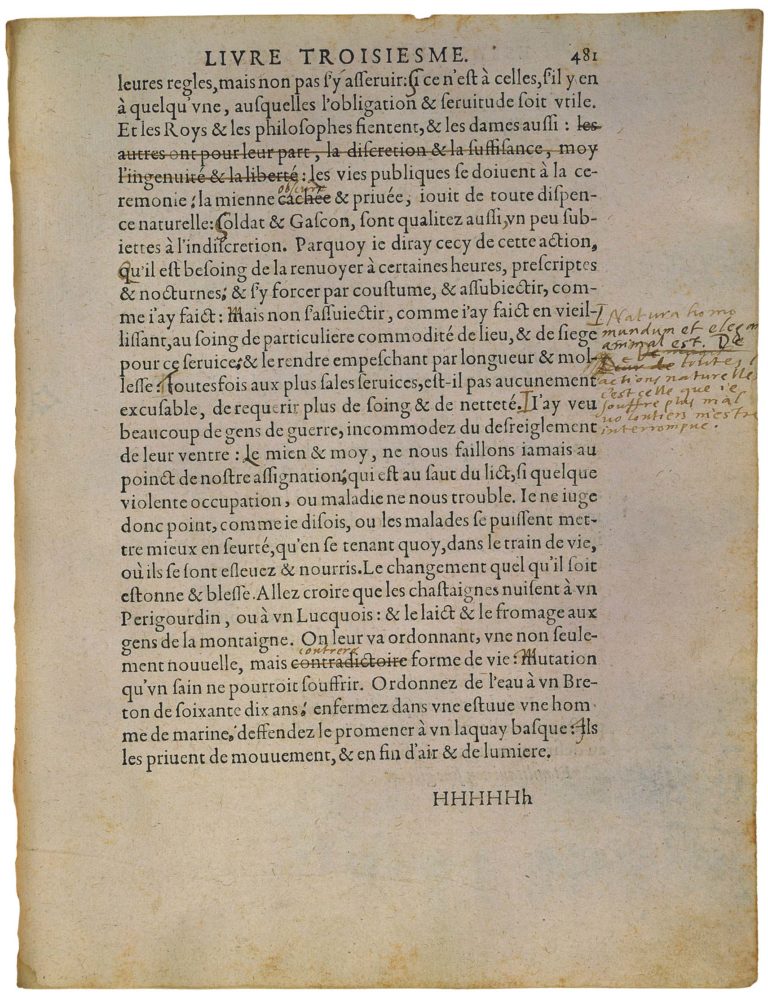 LIVRE TROISIESME. 481
leures regles, mais non pas s'y asseruir: si ce n'est à celles, s'il y en
à quelqu'vne, ausquelles l'obligation & seruitude soit vtile.
Et les Roys & les philosophes fientent, & les dames aussi : les
autres ont pour leur part, la discretion & la suffisance, moy
l'ingenuité & la liberté : les vies publiques se doiuent à la ce-
obscure
remonie; la mienne cachée & priuée, iouit de toute dispen-
ce naturelle: Soldat & Gascon, sont qualitez aussi, vn peu sub-
iettes à l'indiscretion. Parquoy ie diray cecy de cette action,
Qu'il est besoing de la renuoyer à certaines heures, prescriptes
& nocturnes; & s'y forcer par coustume, & assubiectir, com-
me i'ay faict: Mais non s'assuiectir, comme i'ay faict en vieil-
lissant, au soing de particuliere commodité de lieu, & de siege
pour ce seruice; & le rendre empeschant par longueur & mol-
lesse: Toutesfois aux plus sales seruices, est-il pas aucunement
excusable, de requerir plus de soing & de netteté. I'ay veu
beaucoup de gens de guerre, incommodez du desreiglement
de leur ventre : Le mien & moy, ne nous faillons iamais au
poinct de nostre assignation; qui est au saut du lict, si quelque
violente occupation, ou maladie ne nous trouble. Ie ne iuge
donc point, comme ie disois, ou les malades se puissent met-
tre mieux en seurté, qu'en se tenant quoy, dans le train de vie,
où ils se sont esleuez & nourris. Le changement quel qu'il soit
estonne & blesse. Allez croire que les chastaignes nuisent à vn
Perigourdin, ou à vn Lucquois : & le laict & le fromage aux
gens de la montaigne. On leur va ordonnant, vne non seule-
contrere
ment nouuelle, mais contradictoire forme de vie: Mutation
qu'vn sain ne pourroit souffrir. Ordonnez de l'eau à vn Bre-
ton de soixante dix ans; enfermez dans vne estuue vne hom
me de marine; deffendez le promener à vn laquay basque: Ils
les priuent de mouuement, & en fin d'air & de lumiere.
HHHHHHh
Natura homo
mundum et elegan
animal est. De
toutes l
actions naturelles
c'est celle que ie
souffre plus mal
uolontiers m'estre
interrompue.